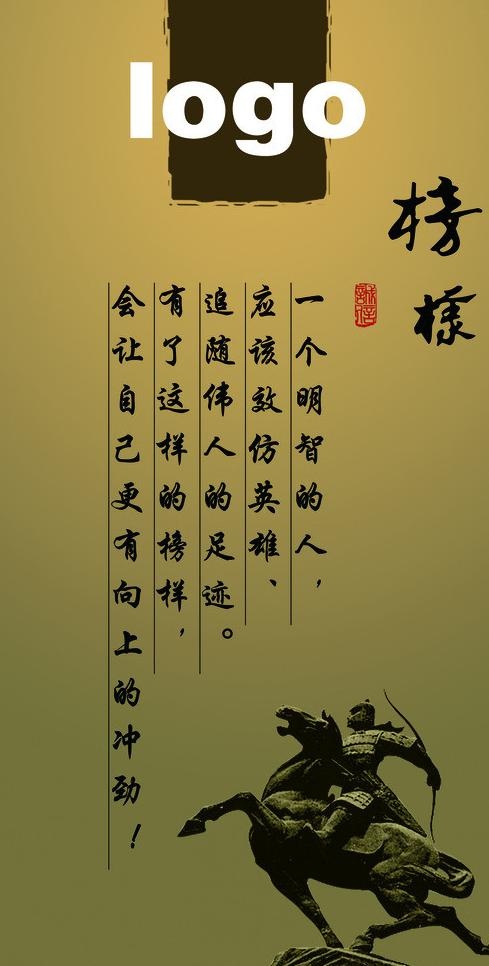 logo
榜樣
誠信
一个明智的人，
应该效仿英雄、
追随伟人的足迹。
有了这样的榜样，
会让自己更有向上的冲劲！